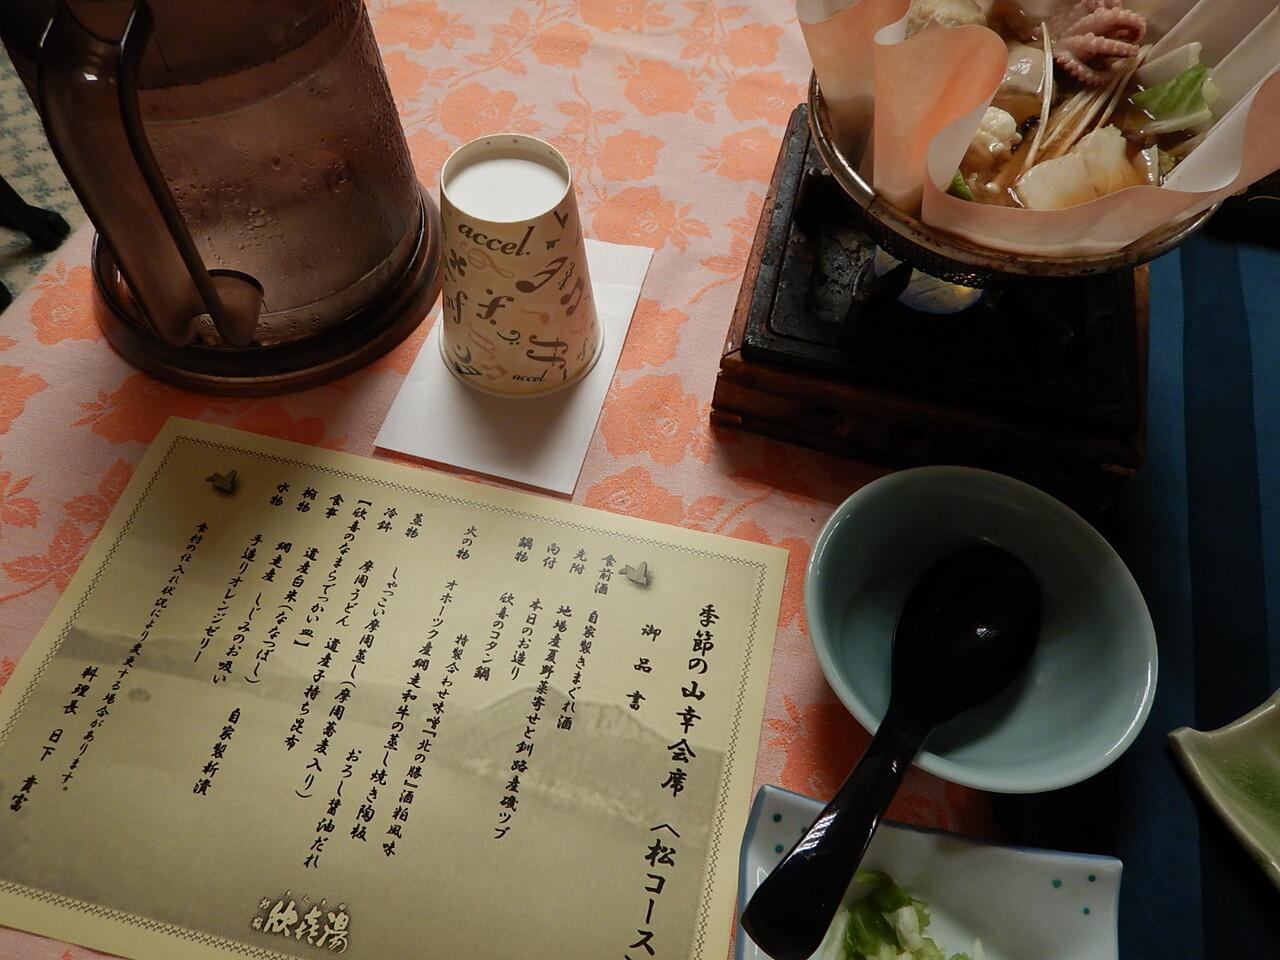 accel.
accel.
季節の山幸会席 〈松コース〉
御品書
食前酒 自家製きまぐれ酒
先附 地場産夏野菜寄せと釧路産磯ツブ
向付 本日のお造り
鍋物 欣喜のコタン鍋
特製合わせ味噌「北の勝」酒粕風味
火の物 オホーツク産網走和牛の蒸し焼き陶板
おろし醤油だれ
蒸物 しゃっこい摩周蒸し(摩周蕎麦入り)
冷鉢 摩周うどん 道産子持ち昆布
【欣喜のなまらでっかい皿】
食事 道産白米(ななつぼし)
椀物 網走産 しじみのお吸い 自家製新漬
水物 手造りオレンジゼリー
食材の仕入れ状況により変更する場合があります。
料理長 日下 貴富
欣喜湯